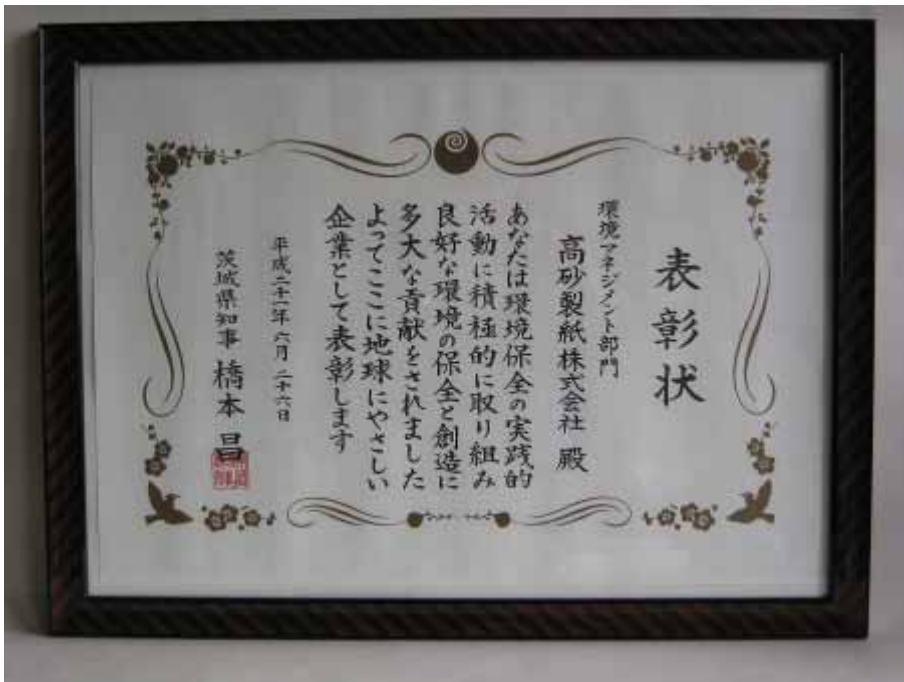 表彰状
環境マネジメント部門
高砂製紙株式会社 殿
あなたは環境保全の実践的
活動に積極的に取り組み
良好な環境の保全と創造に
多大な貢献をされました
よってここに地球にやさしい
企業として表彰します
平成二十一年六月二十六日
茨城県知事 橋本 昌